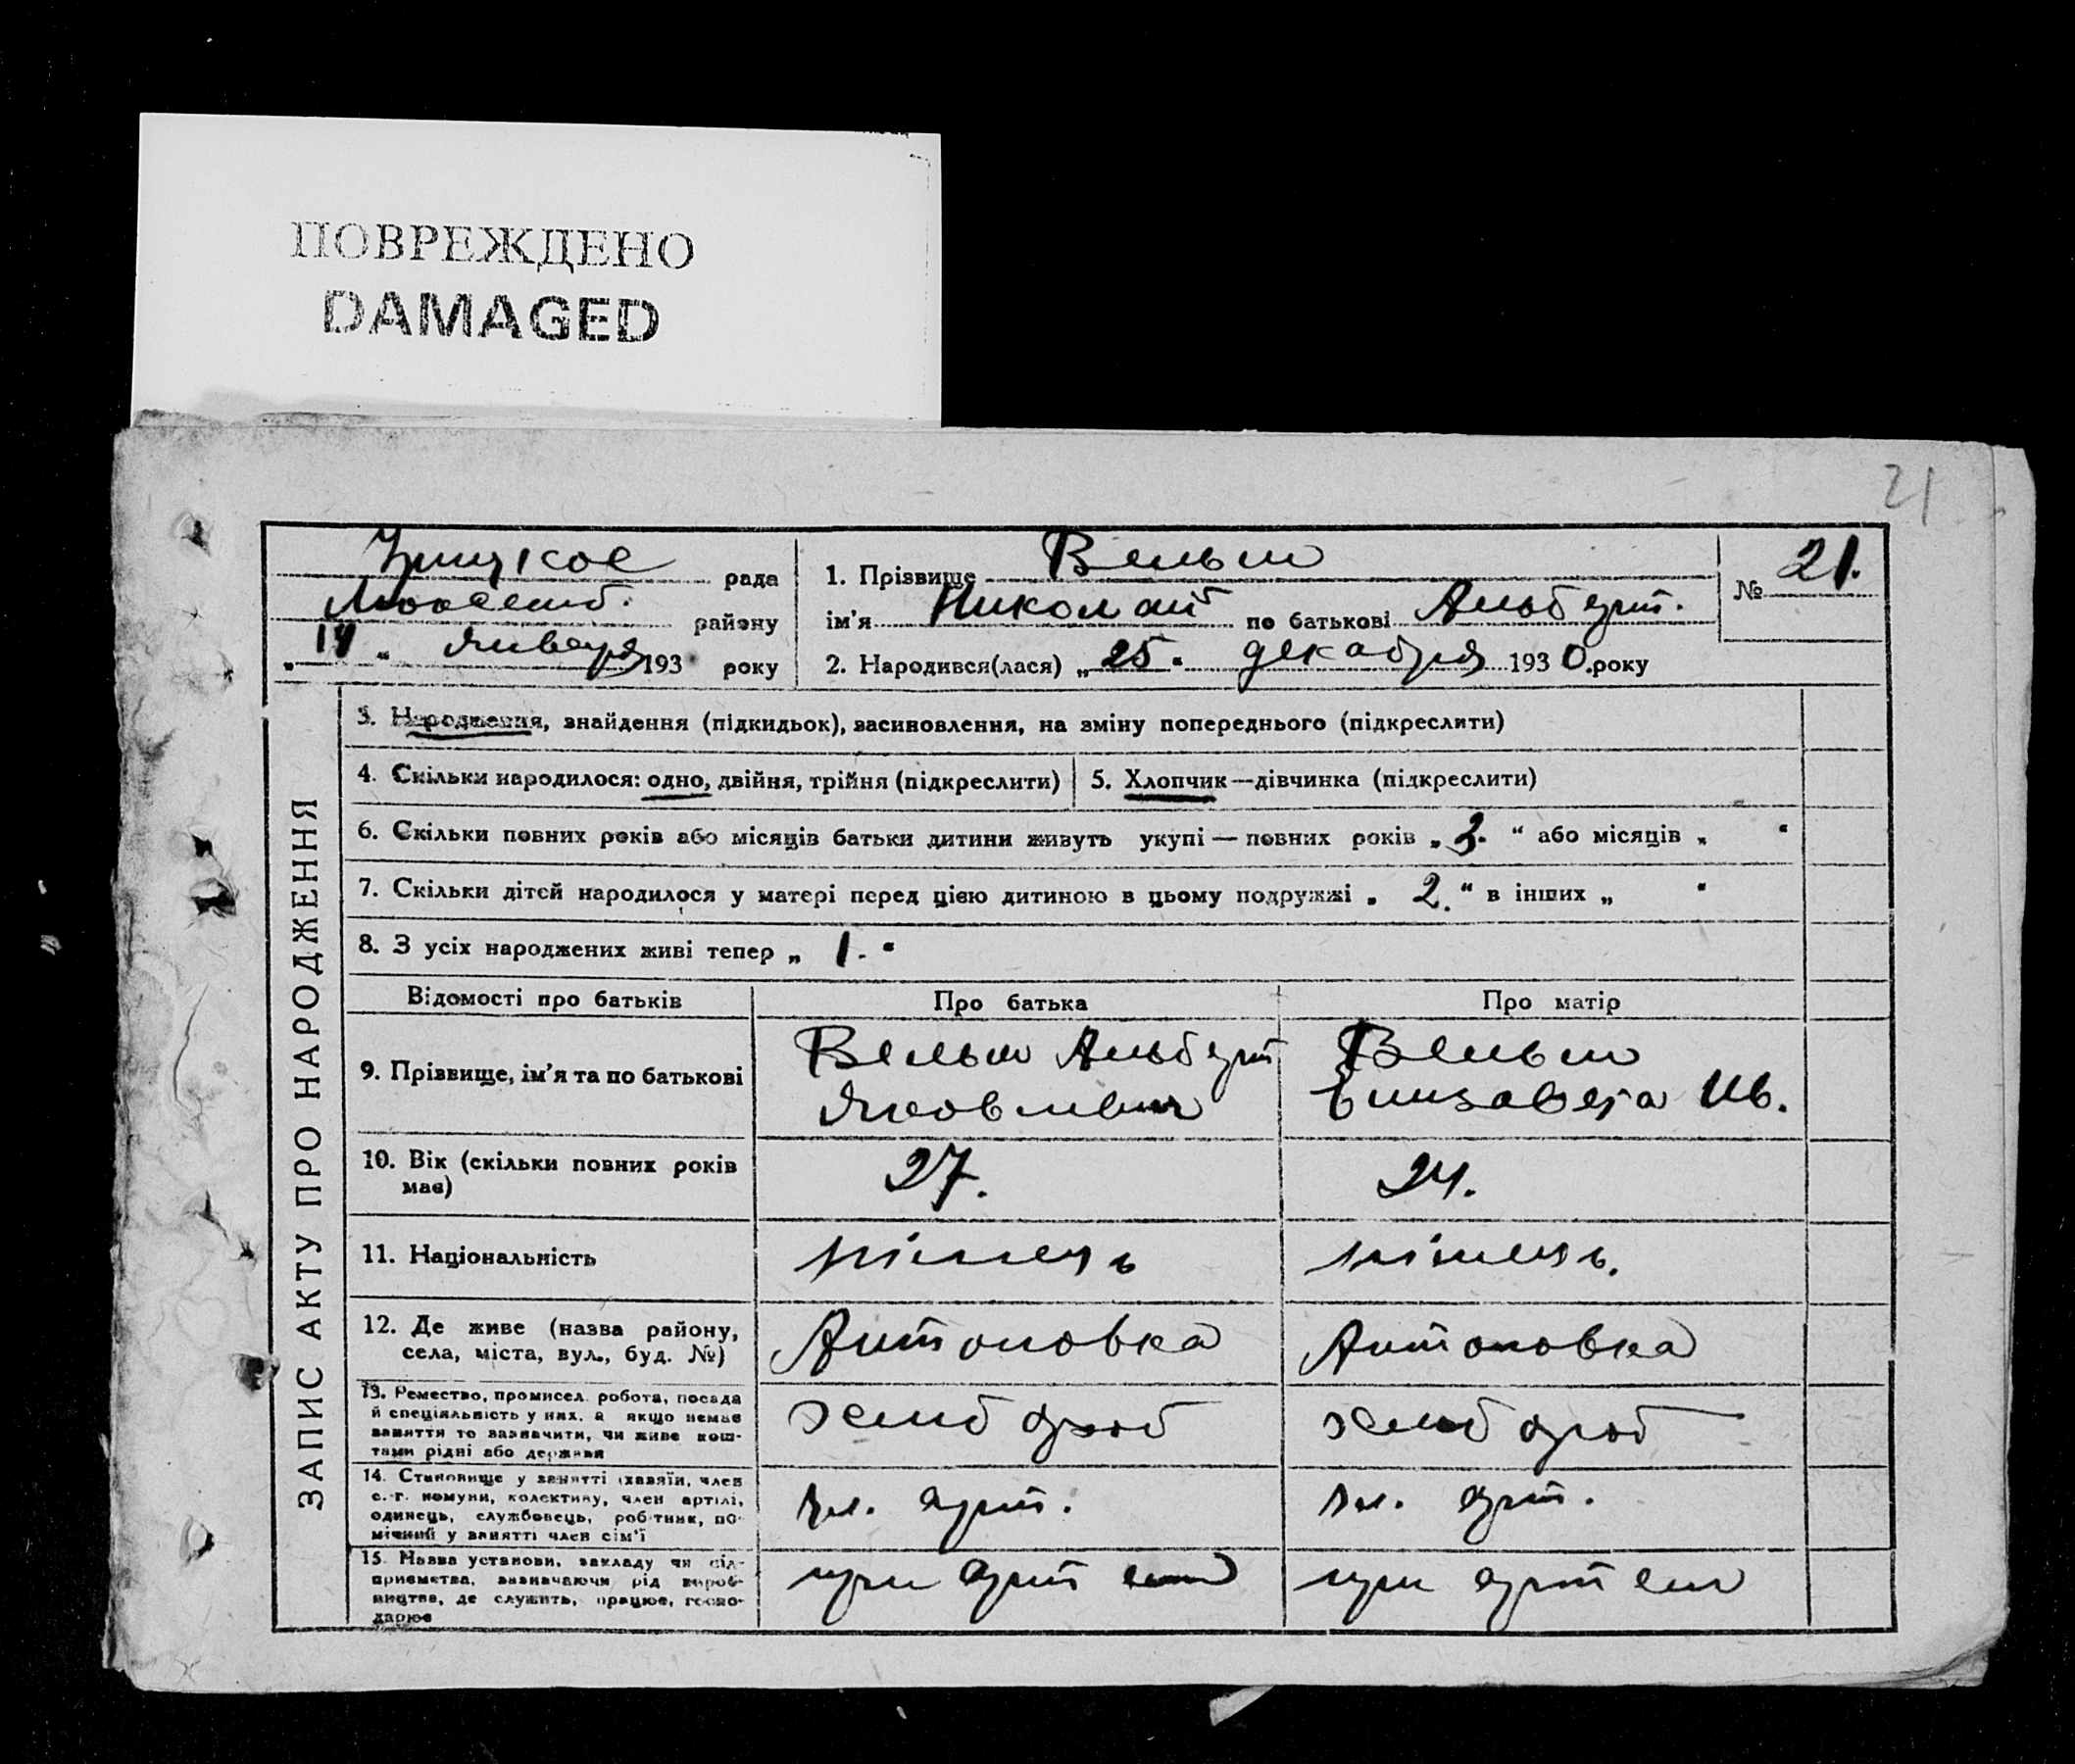 ПОВРЕЖДЕНО
DAMAGED
21
рада
району
„14“ января 193 року
1. Прізвище Вельш
ім'я Николай по батькові Альберт.
2. Народився(лася) „25“ декабря 1930 року
№ 21.
ЗАПИС АКТУ ПРО НАРОДЖЕННЯ
3. Народження, знайдення (підкидьок), засиновлення, на зміну попереднього (підкреслити)
4. Скільки народилося: одно, двійня, трійня (підкреслити)
5. Хлопчик—дівчинка (підкреслити)
6. Скільки повних років або місяців батьки дитини живуть укупі — повних років „3.“ або місяців „ “
7. Скільки дітей народилося у матері перед цією дитиною в цьому подружжі „2.“ в інших „ “
8. З усіх народжених живі тепер „1.“
Відомості про батьків
Про батька
Про матір
9. Прізвище, ім'я та по батькові
Вельш Альберт
Яковлевич
Вельш
Елизавета Ив.
10. Вік (скільки повних років
має)
27.
24.
11. Національність
німець
німець.
12. Де живе (назва району,
села, міста, вул., буд. №)
Антоновка
Антоновка
13. Ремество, промисел, робота, посада
й спеціяльність у них, а якщо немає
заняття то зазначити, чи живе кош-
тами рідні або держави
хлібороб
хлібороб
14. Становище у занятті (хазяїн, член
с.-г. комуни, колективу, член артілі,
одинець, службовець, робітник, по-
мічний у занятті член сім'ї
чл. арт.
чл. арт.
15. Назва установи, закладу чи під-
приємства, зазначаючи рід вироб-
ництва, де служить, працює, госпо-
дарює
при артели
при артели